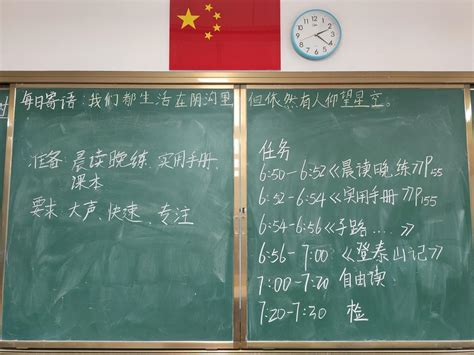 每日寄语：我们都生活在阴沟里，但依然有人仰望星空。
准备 晨读晚练、实用手册、
课本
要求 大声、快速、专注
任务
6:50-6:52《晨读晚练》P55
6:52-6:54《实用手册》P155
6:54-6:56《子路....》
6:56-7:00《登泰山记》
7:00-7:20 自由读
7:20-7:30 检